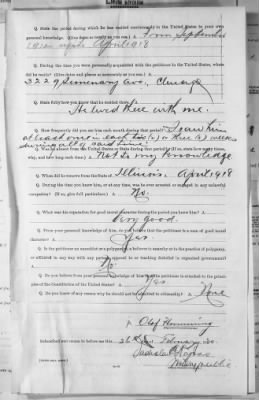 Q. State the period during which he has resided continuously in the United States to your own
personal knowledge. (Give dates as nearly as you can.) A. From September
April 1918
Q. During the time you were personally acquainted with the petitioner in the United States, where
did he reside? (Give dates and places as accurately as you can.) A.
3229 Seminary Ave., Chicago
Q. State fully how you know that he resided there. A.
He lived there with me.
Q. How frequently did you see him each month during that period? A. I saw him
at least once in each two (2) or three (3) weeks
during all of said time
Q. Was he absent from the United States during that period? If so, state how many times,
why, and how long each time.) A. Not to my knowledge
Q. When did he remove from the State of Illinois. April 1918
Q. During the time you knew him, or at any time, was he ever arrested or engaged in any unlawful
occupation? (If so, give full particulars.) A. No.
Q. What was his reputation for good moral character during the period you knew him? A.
Very good.
Q. From your personal knowledge of him, do you believe that the petitioner is a man of good moral
character? A. Yes.
Q. Is the petitioner an anarchist or a polygamist, or a believer in anarchy or in the practice of polygamy,
or affiliated in any way with any person opposed to or teaching disbelief in organized government?
A. No
Q. Do you believe from your personal knowledge that the petitioner is attached to the princi-
ples of the Constitution of the United States? A. Yes
Q. Do you know of any reason why he should not be admitted to citizenship? A. None
Olof Flemming
Subscribed and sworn to before me this 26th day February 20.